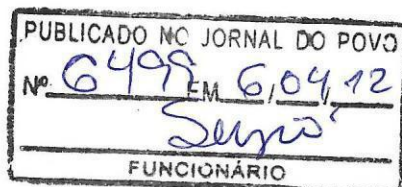 PUBLICADO NO JORNAL DO POVO
Nº 6499 EM 6,04,12
Sergio
FUNCIONÁRIO